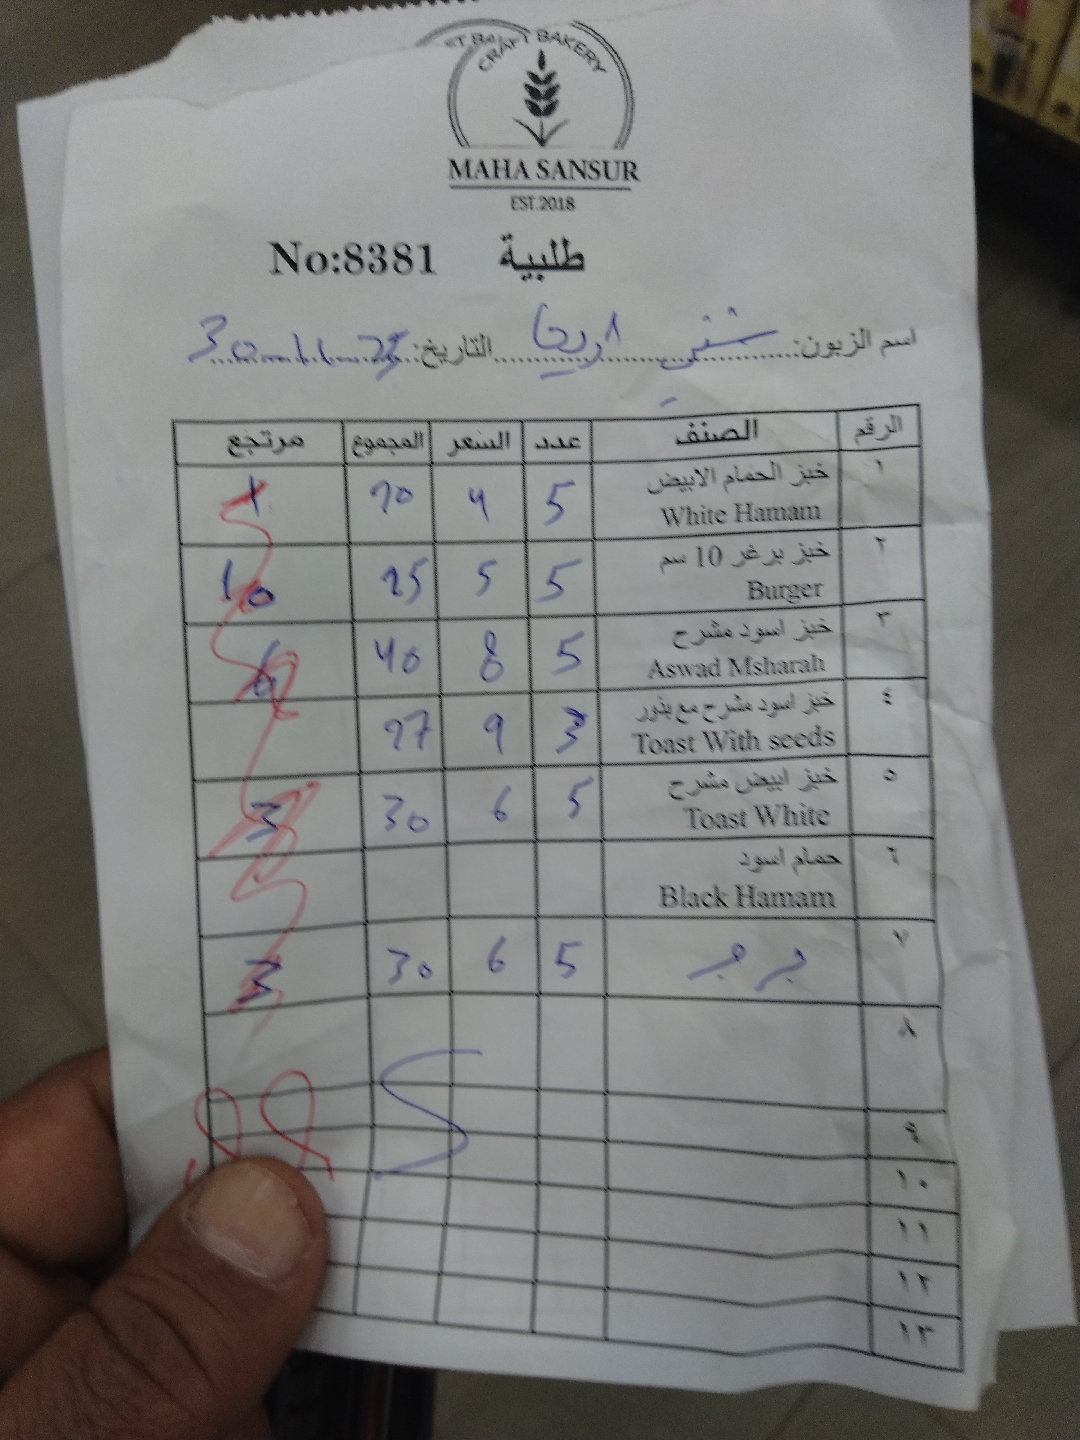 CRAFT BAKERY
MAHA SANSUR
EST.2018
No:8381 طلبية
اسم الزبون: اريحا التاريخ: 30 11 25
الرقم الصنف عدد السعر المجموع مرتجع
١ خبز الحمام الابيض White Hamam 5 4 20 1
٢ خبز برغر 10 سم Burger 5 5 25 10
٣ خبز اسود مشرح Aswad Msharah 5 8 40 6
٤ خبز اسود مشرح مع بذور Toast With seeds 3 9 27
٥ خبز ابيض مشرح Toast White 5 6 30 3
٦ حمام اسود Black Hamam
٧ 5 6 30 3
٨
٩
١٠
١١
١٢
١٣